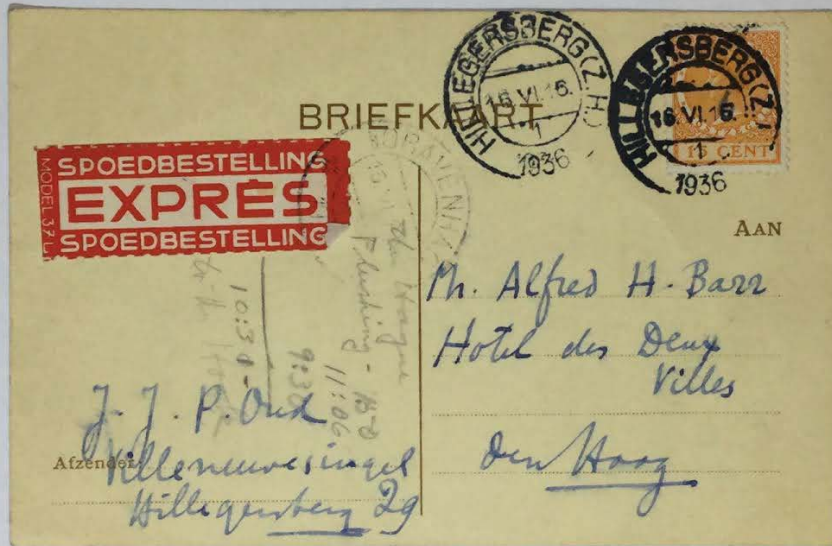 BRIEFKAART
HILLEGERSBERG (Z.H.)
16.VI.16.
1
1936
HILLEGERSBERG (Z.H.)
16.VI.16.
1
1936
CENT
MODEL 37L
SPOEDBESTELLING
EXPRÈS
SPOEDBESTELLING
The Hague
Flushing -
11:06
9:30
10:30 -
AAN
Mr. Alfred H. Barr
Hotel des Deux
Villes
den Haag
J. J. P. Oud
Afzender
Villeneuvesingel
Hillegersberg 29